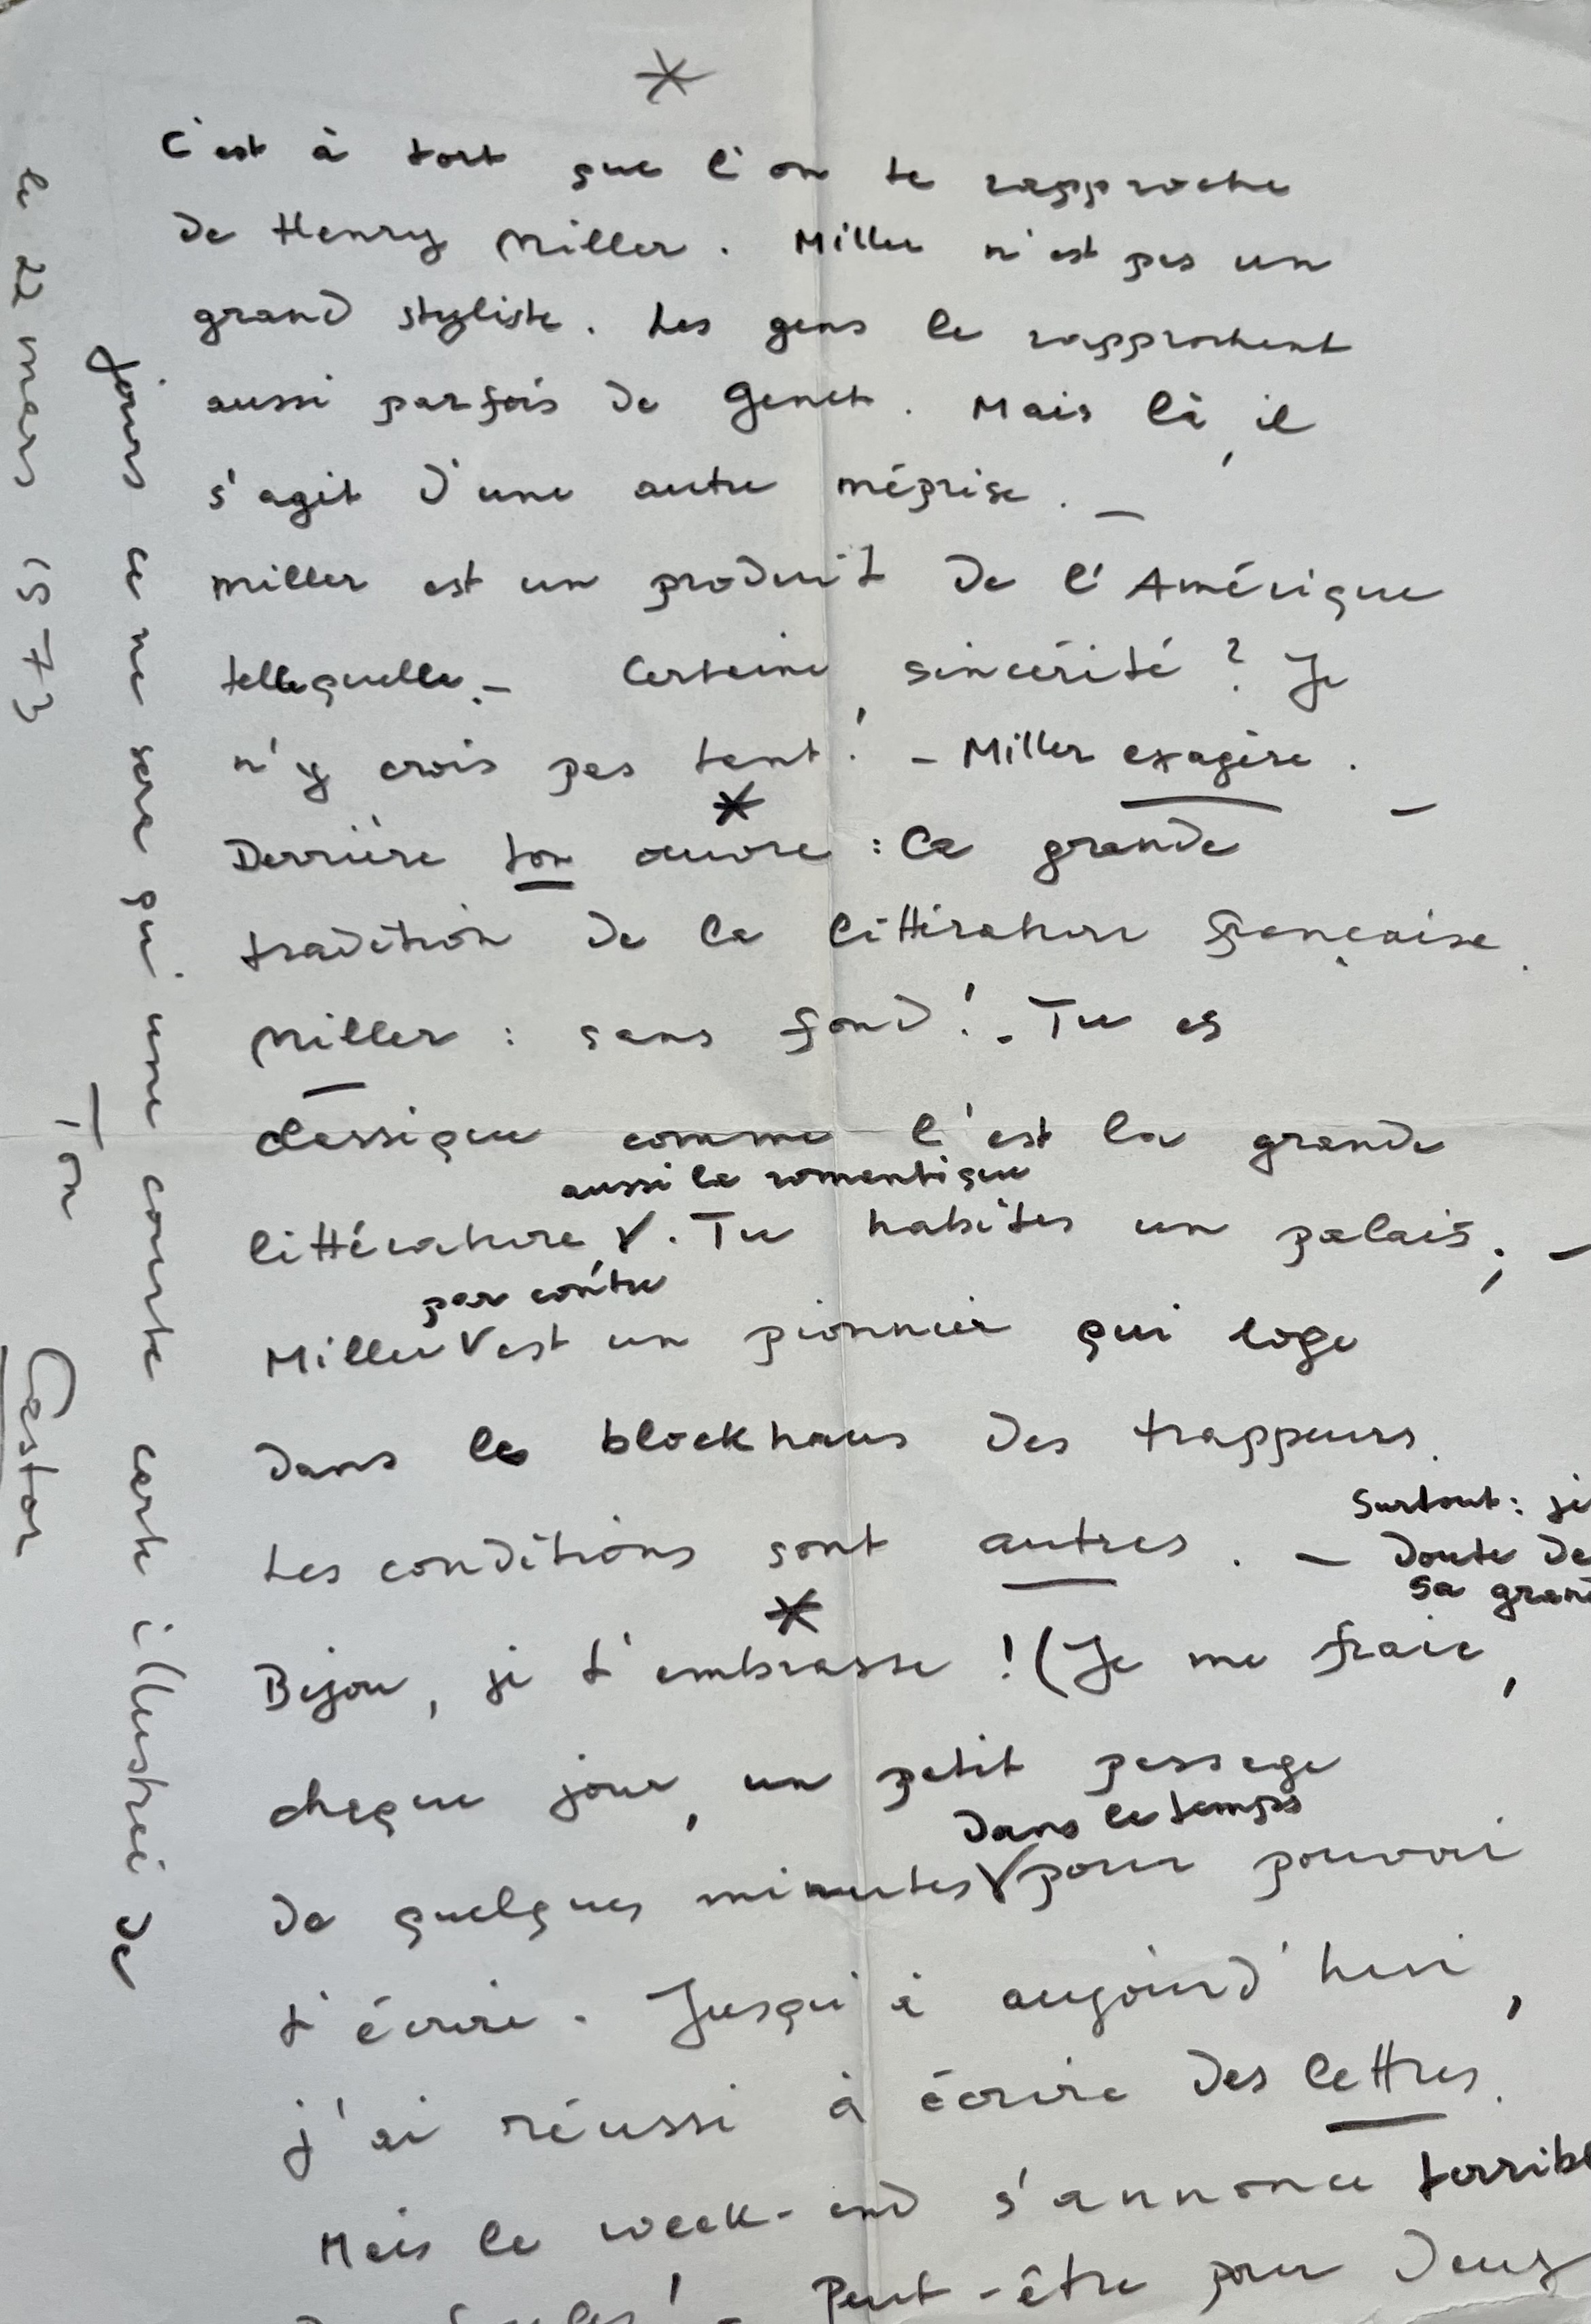 *
C'est à tort que l'on te rapproche
de Henry Miller. Miller n'est pas un
grand styliste. Les gens le rapprochent
aussi parfois de Genet. Mais là, il
s'agit d'une autre méprise. —
Miller est un produit de l'Amérique
telle quelle. — Certaine sincérité ? Je
n'y crois pas tant ! — Miller exagère. —
*
Derrière ton œuvre : la grande
tradition de la littérature française.
Miller : sans fond ! . Tu es
classique comme l'est la grande
aussi la romantique
littérature V. Tu habites un palais ; —
par contre
Miller V est un pionnier qui loge
dans les blockhaus des trappeurs.
Les conditions sont autres. — Surtout : je
doute de
sa grand
*
Bijou, je t'embrasse ! (Je me fraie,
chaque jour, un petit passage
dans le temps
de quelques minutes V pour pouvoir
t'écrire. Jusqu'à aujourd'hui,
j'ai réussi à écrire des lettres.
Mais le week-end s'annonce terribl
! — Peut-être pour deux
jours ce ne sera qu'une courte carte illustrée de
Ton Castor
le 22 mars 1973